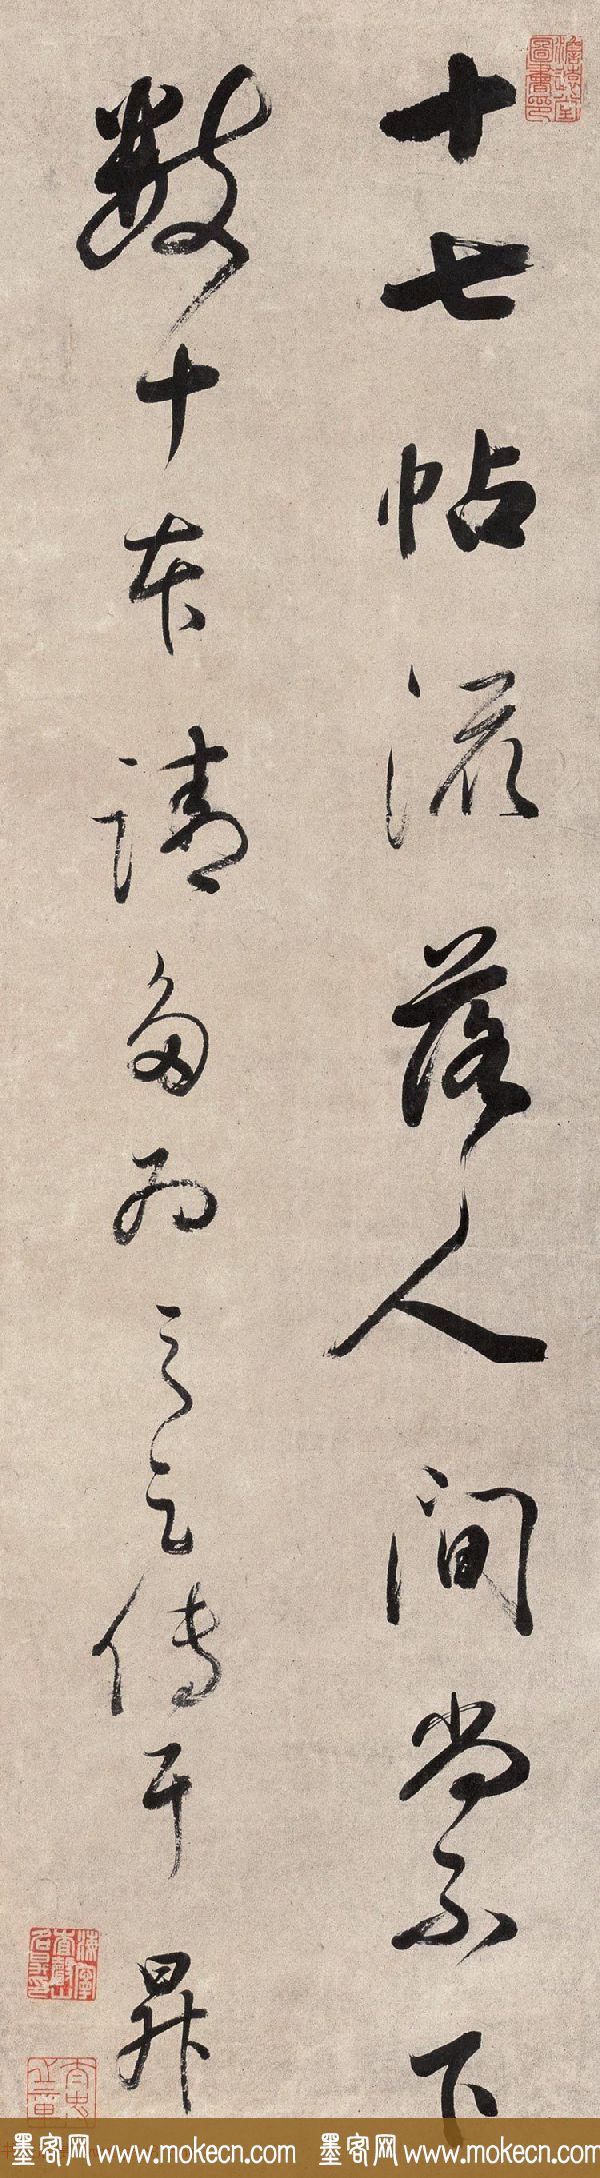 十七帖流落人間尚不下
數十本請多為之傳昇
澹遠堂圖書印
墨客网www.mokecn.com 墨客网www.mokecn.com